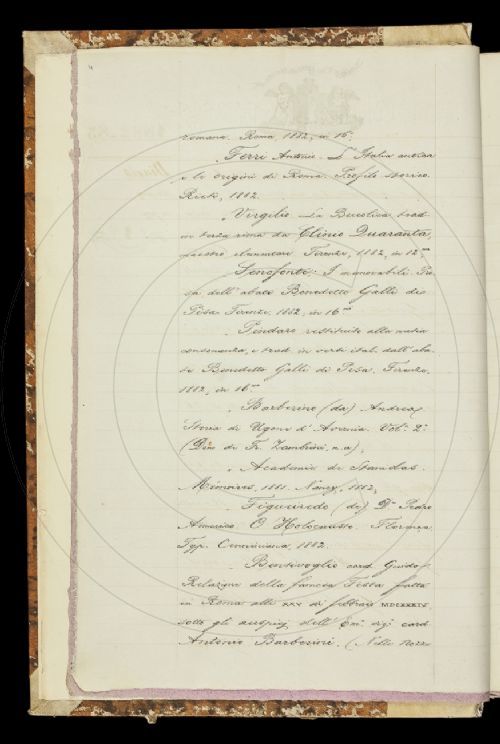 romana. Roma, 1882, in 16.
" Ferri Antonio. L'Italia antica
e le origini di Roma. Profilo storico.
Rieti, 1882.
" Virgilio. La Bucolica, trad.
in terza rima da Clinio Quaranta,
maestro elementare. Firenze, 1882, in 12.mo
" Senofonte. I memorabili.
dell'abate Benedetto Galli di
Pisa. Firenze, 1882, in 16mo
" Pindaro restituito alla natia
e trad. in versi ital. dall'aba-
te Benedetto Galli di Pisa. Firenze,
1882, in 16mo
" Barberino (da) Andrea,
Storia di Ugone d'Avernia. Vol. 2.
(Dono di Fr. Zambrini, n.a)
" Academie de Stanislas.
Mémoires, 1881. Nancy, 1882.
" Figueiredo (de) Dr. Pedro
Americo. O Holocausto. Florença,
Typ. Cenniniana, 1882.
" Bentivoglio card. Guido.
Relazione della famosa Festa fatta
in Roma alli XXV di febbraio MDCXXXIV,
sotto gli auspizj dell' Em. sig. card.
Antonio Barberini. (Nelle Nozze